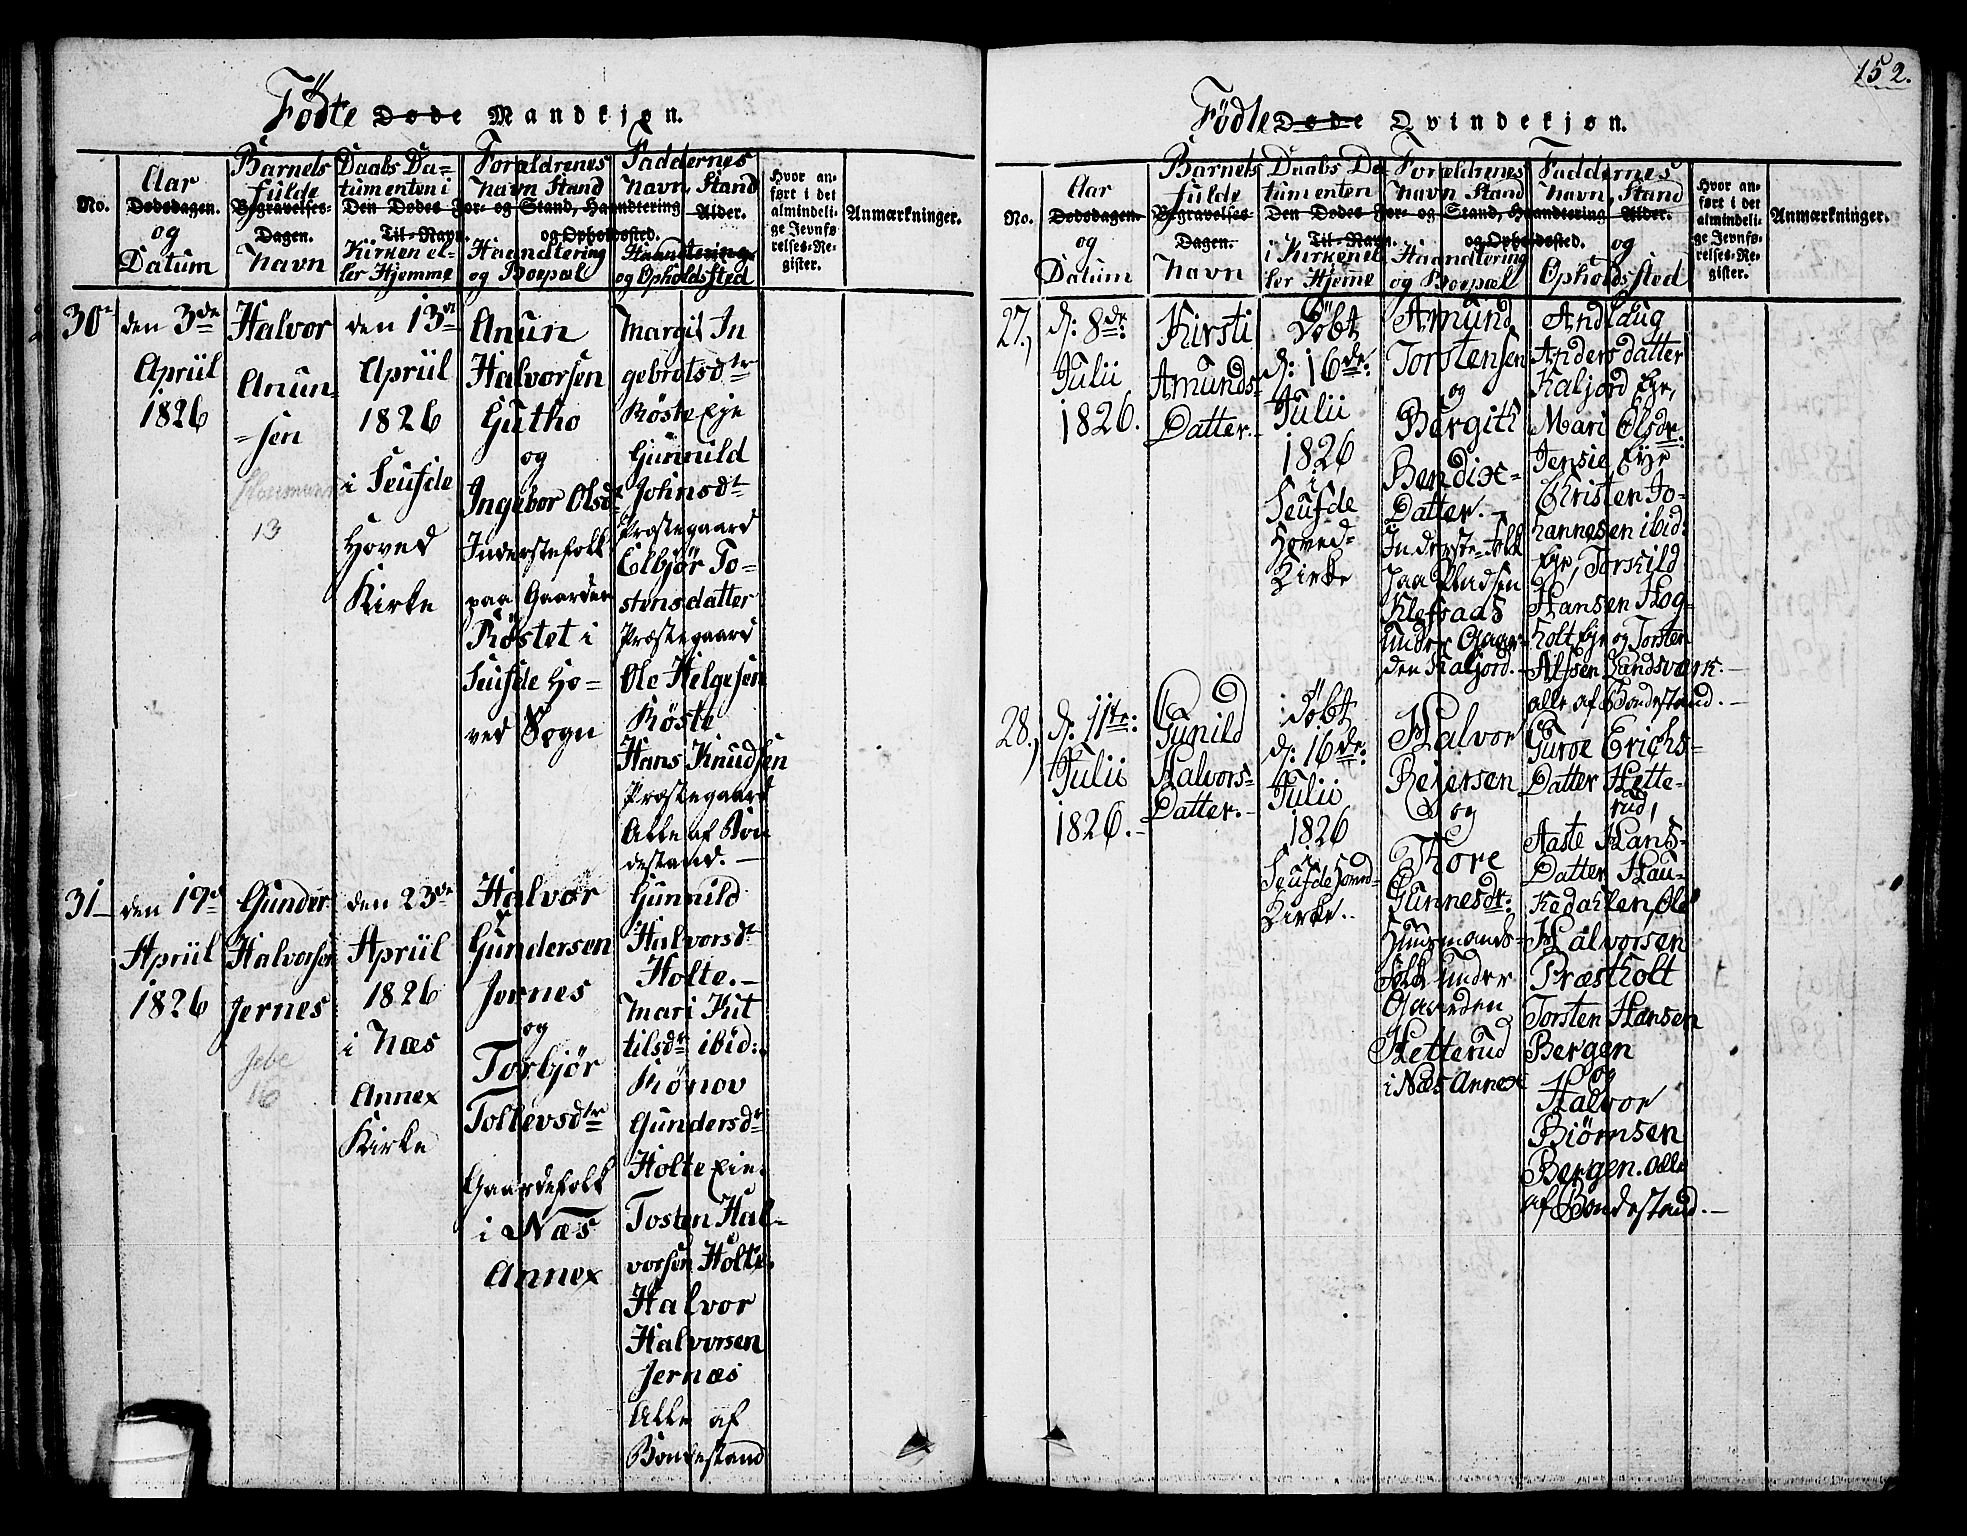 152.
Fødte Døde Mandkjøn.
No.
Aar
Dødsdagen.
og
Datum
Barnets
fulde
Begravelses-
Dagen.
Navn
Daabs Da-
tumenten i
Den Dødes For- og
Til-Navn.
Kirken el-
ler Hjemme
Forældrenes
Navn Stand
Stand, Haandtering
og Opholdssted.
Haandtering
og Boepæl
Faddernes
Navn, Stand
Alder.
Haandtering
og Opholds sted
Hvor an-
ført i det
almindeli-
ge Jevnfø-
relses-Re-
gister.
Anmærkninger.
30
den 3de
Apriil
1826
Halvor
Anun-
-sen
13
den 13de
Apriil
1826
i Seufde
Hoved
Kirke
Anun
Halvorsen
Gutho
og
Ingebor Olsdt
Inderstefolk
paa Gaarden
Røstet i
Seufde Ho-
ved Sogn
Margit In
gebrotsdtr
Røste Eje
Gunnild
Johnsdt
Præstegaard
Elbjør To-
stensdatter
Præstegaard
Ole Helgesen
Røste
Hans Knudsen
Præstegaard
Alle af Bon
destand. —
31
den 19d
Apriil
1826
Gunder
Halvorsen
Jernes
16
den 23de
Apriil
1826
i Næs
Annex
Kirke
Halvor
Gundersen
Jernes
og
Torbjør
Tollevsdtr
Gaardefolk
i Næs
Annex
Gunnild
Halvorsdt
Holte. —
Mari Kit
tilsdr ibid:
Rønov
Gundersdt
Holte Eie.
Tosten Hal-
vorsen Holte
Halvor
Halvorsen
Jernæs
Alle af
Bondestand
Fødte Døde Qvindekjøn.
No.
Aar
Dødsdagen.
og
Datum
Barnets
fulde
Begravelses-
Dagen.
Navn
Daabs Da-
tumenten
Den Dødes For- og
Til-Navn.
i Kirken el
ler Hjeme
Forældrenes
Navn Stand
Stand, Haandtering
og Opholdssted.
Haandtering
og Boepæl
Faddernes
Navn, Stand
Alder.
og
Opholds sted
Hvor an-
ført i det
almindeli-
ge Jevnfø-
relses-Re-
gister.
Anmærkninger.
27,
d: 8de:
Julii
1826.
Kirsti
Amunds-
Datter.
Døbt
d: 16de:
Julii
1826
i
Seufde
Hoved-
Kirke
Amund
Torstensen
og
Bergith
Bendixe-
Datter. —
Inderste-Folk
paa Pladsen
Klefsaas
under Gaar-
den Kaljord.
Andlaug
Anders datter
Kaljord Eje,
Mari Olsdr:
Jensie, Eje
Christen Jo-
hannesen ibid:
Eje, Torskild
Hansen Hog-
holt Eje og Torsten
Alfsen Landsværk. —
alle af Bondestand. —
28,
d: 11te:
Julii
1826. —
Gunild
Halvors-
Datter. —
Døbt
d: 16de:
Julii
1826
i
Seufde Hoved-
Kirke.
Halvor
Rejersen
og
Thore
Gunnesdt:
Huusmands-
Folk under
Gaarden
Hetterud
i Næs Annex
Guroe Erichs-
Datter Hette-
rud,
Aaste Hans-
Datter Hau-
kedahlen, Ole
Halvorsen
Præstholt
Torsten Hansen
Bergen
og
Halvor
Biørnsen
Bergen. alle
af Bondestand. —